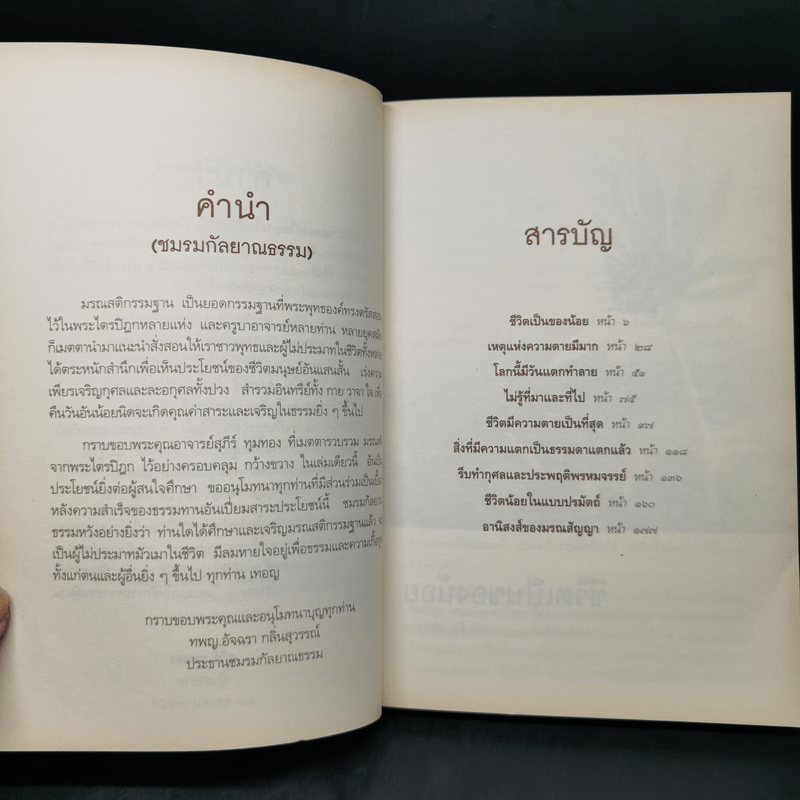 คำนำ
(ชมรมกัลยาณธรรม)
มรณสติกรรมฐาน เป็นยอดกรรมฐานที่พระพุทธองค์ทรงตรัสสอน
ไว้ในพระไตรปิฎกหลายแห่ง และครูบาอาจารย์หลายท่าน หลายยุคสมัย
ก็เมตตานำมาแนะนำสั่งสอนให้เราชาวพุทธและผู้ไม่ประมาทในชีวิตทั้งหลาย
ได้ตระหนักสำนึกเพื่อเห็นประโยชน์ของชีวิตมนุษย์อันแสนสั้น เร่งความ
เพียรเจริญกุศลและละอกุศลทั้งปวง สำรวมอินทรีย์ทั้ง กาย วาจา ใจ
คืนวันอันน้อยนิดจะเกิดคุณค่าสาระและเจริญในธรรมยิ่ง ๆ ขึ้นไป
กราบขอบพระคุณอาจารย์สุภีร์ ทุมทอง ที่เมตตารวบรวม มรณสติ
จากพระไตรปิฎก ไว้อย่างครอบคลุม กว้างขวาง ในเล่มเดียวนี้ อันเป็น
ประโยชน์ยิ่งต่อผู้สนใจศึกษา ขออนุโมทนาทุกท่านที่มีส่วนร่วมเป็นเบื้อง
หลังความสำเร็จของธรรมทานอันเปี่ยมสาระประโยชน์นี้ ชมรมกัลยาณ
ธรรมหวังอย่างยิ่งว่า ท่านใดได้ศึกษาและเจริญมรณสติกรรมฐานแล้ว
เป็นผู้ไม่ประมาทมัวเมาในชีวิต มีลมหายใจอยู่เพื่อธรรมและความเกื้อกูล
ทั้งแก่ตนและผู้อื่นยิ่ง ๆ ขึ้นไป ทุกท่าน เทอญ
กราบขอบพระคุณและอนุโมทนาบุญทุกท่าน
ทพญ.อัจฉรา กลิ่นสุวรรณ์
ประธานชมรมกัลยาณธรรม
สารบัญ
ชีวิตเป็นของน้อย หน้า ๖
เหตุแห่งความตายมีมาก หน้า ๒๘
โลกนี้มีวันแตกทำลาย หน้า ๕๑
ไม่รู้ที่มาและที่ไป หน้า ๗๕
ชีวิตมีความตายเป็นที่สุด หน้า ๙๗
สิ่งที่มีความแตกเป็นธรรมดาแตกแล้ว หน้า ๑๑๘
รีบทำกุศลและประพฤติพรหมจรรย์ หน้า ๑๓๖
ชีวิตน้อยในแบบปรมัตถ์ หน้า ๑๖๐
อานิสงส์ของมรณสัญญา หน้า ๑๗๗
ชีวิตเป็นของน้อย